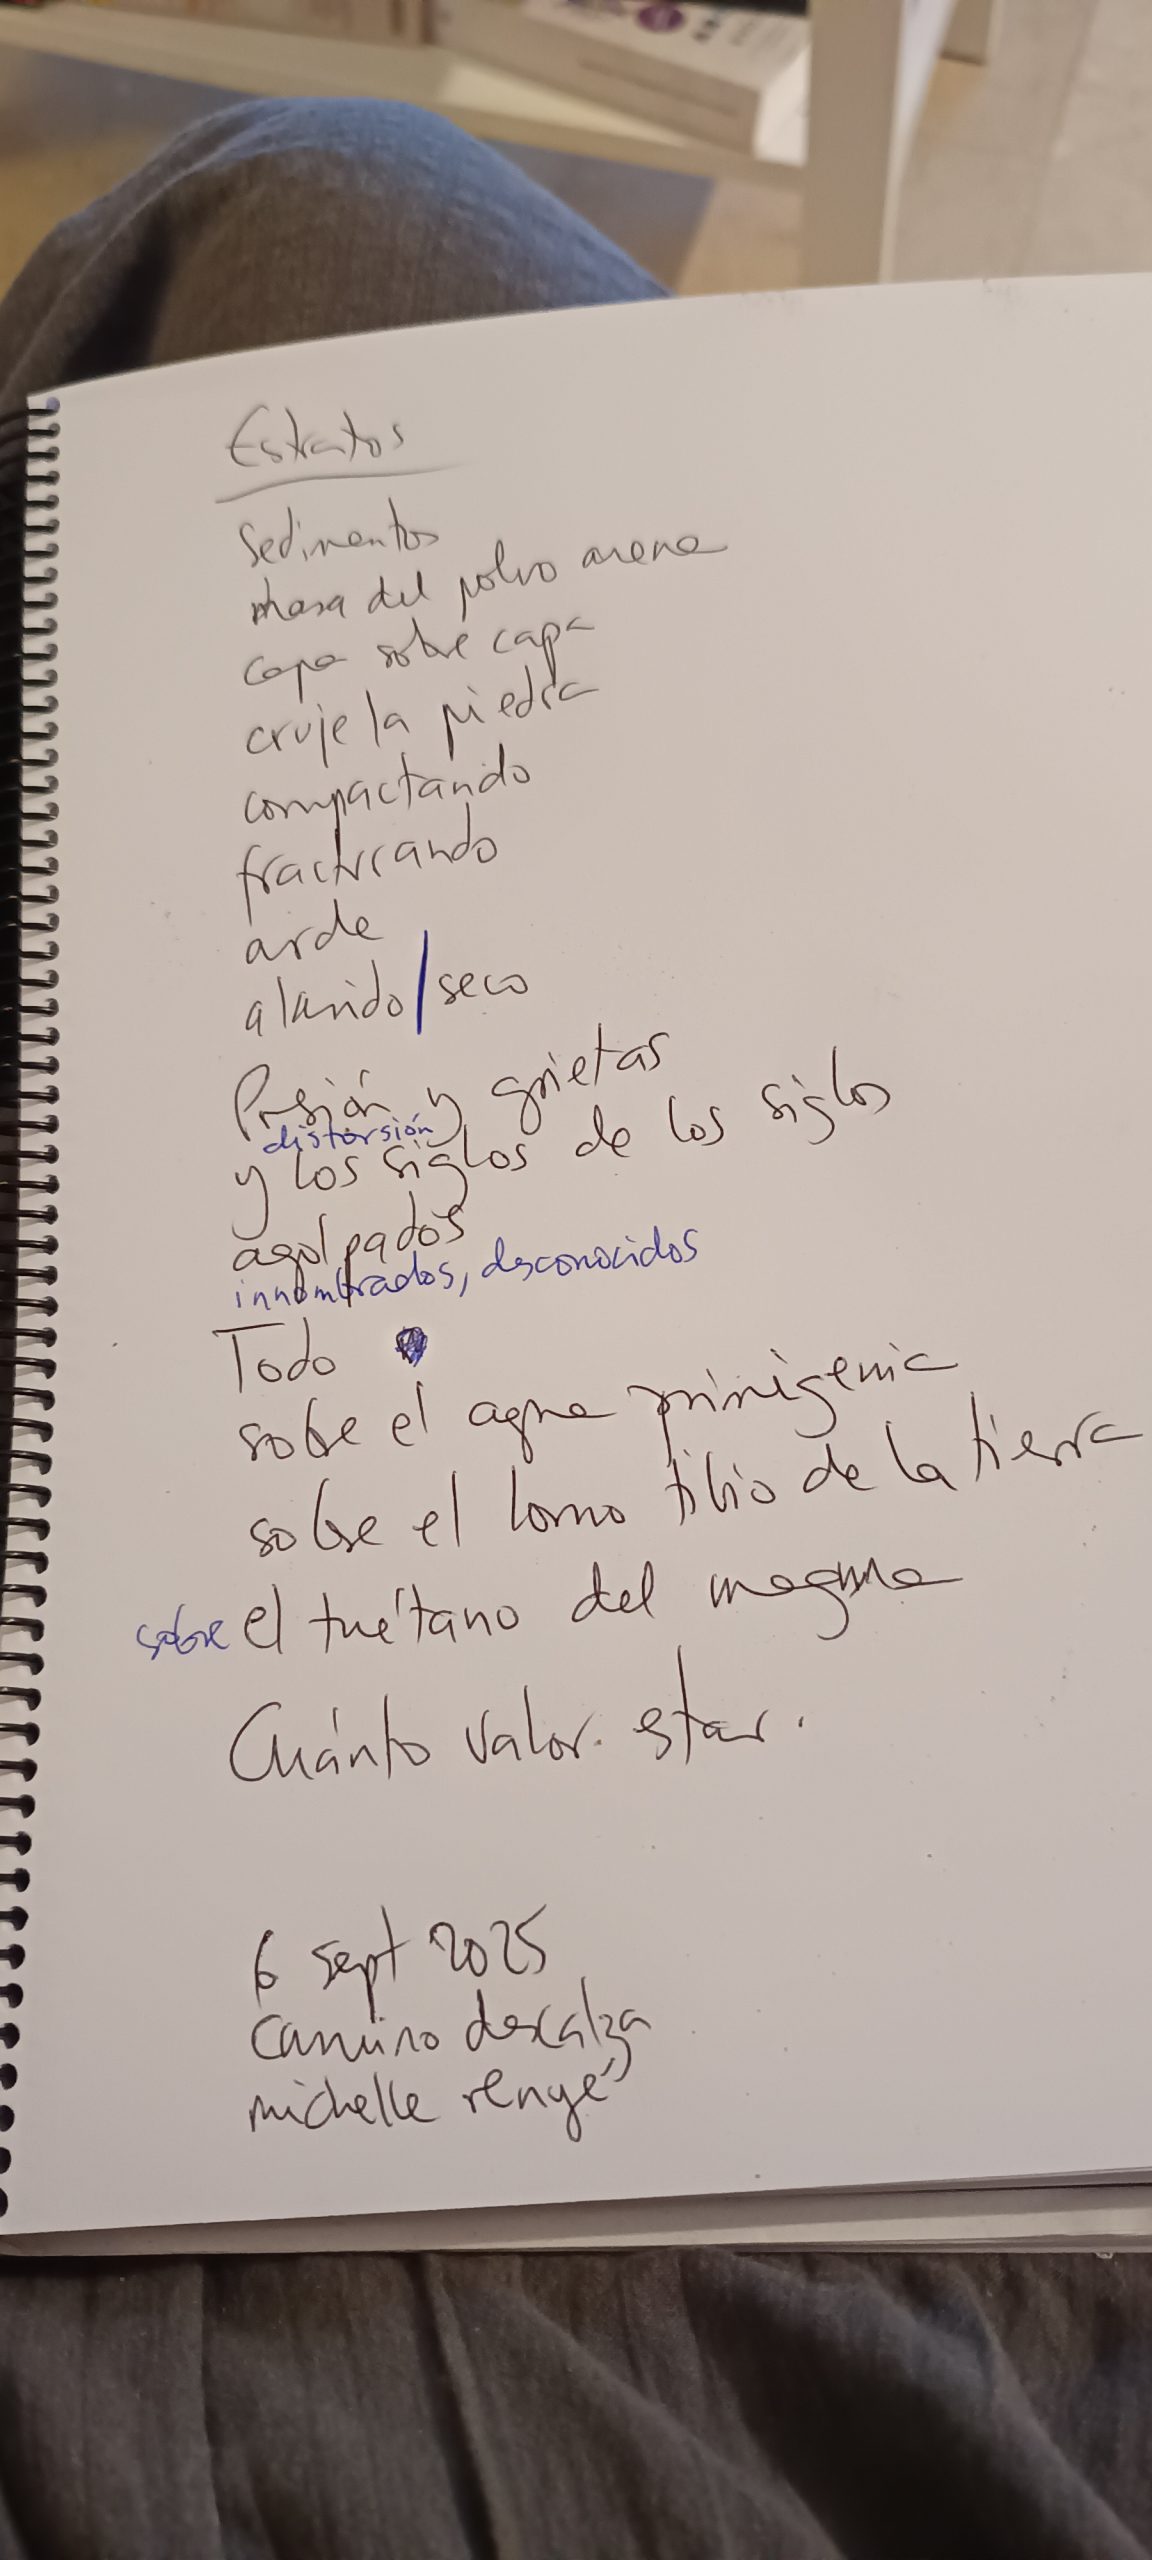 Estratos
Sedimentos
masa del polvo arena
capa sobre capa
cruje la piedra
compactando
fracturando
arde
alarido/seco
Presión y grietas
distorsión
y los siglos de los siglos
agolpados
innombrados, desconocidos
Todo
sobre el agua primigenia
sobre el lomo tibio de la tierra
sobre el tuétano del magma
Cuánto valor. estar.
6 sept 2025
camino descalza
michelle renyé